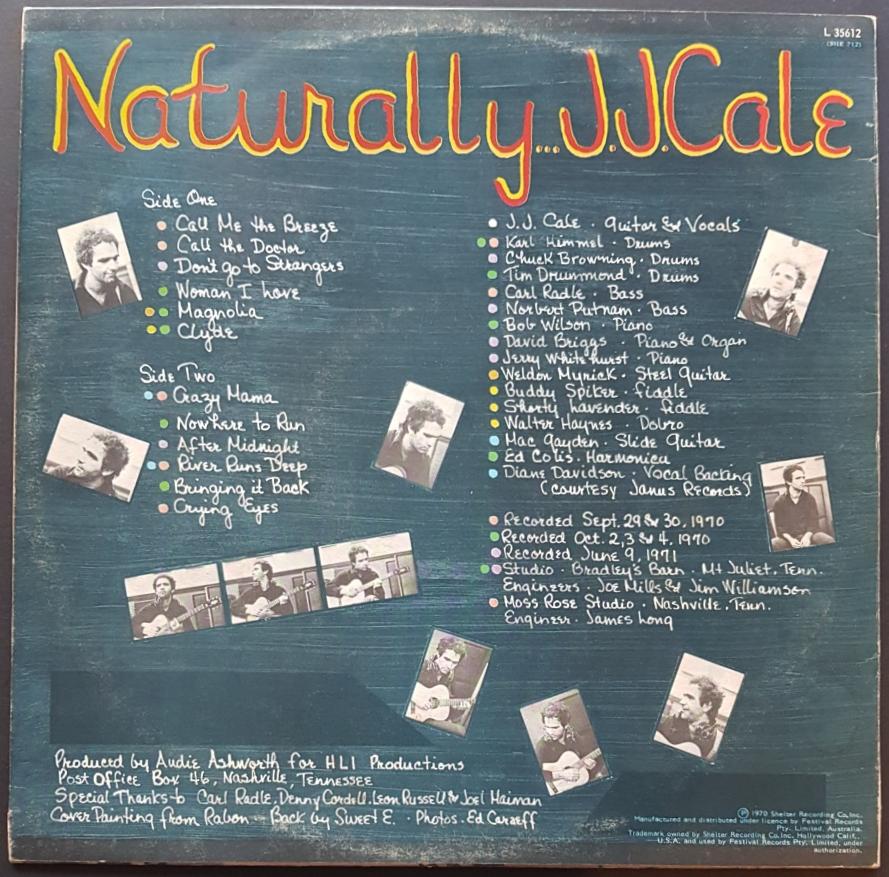 L 35612
Naturally... J.J. Cale
Side One
Call Me the Breeze
Call the Doctor
Don't go to Strangers
Woman I Love
Magnolia
Clyde
Side Two
Crazy Mama
Nowhere to Run
After Midnight
River Runs Deep
Bringing it Back
Crying Eyes
J.J. Cale · guitar & Vocals
Karl Himmel · Drums
Chuck Browning · Drums
Tim Drummond · Drums
Carl Radle · Bass
Norbert Putnam · Bass
Bob Wilson · Piano
David Briggs · Piano & Organ
Jerry Whitehurst · Piano
Weldon Myrick · Steel guitar
Buddy Spiker · fiddle
Shorty Lavender · fiddle
Walter Haynes · Dobro
Mac Gayden · Slide guitar
Ed Colis · Harmonica
Diane Davidson · Vocal Backing
(courtesy Janus Records)
Recorded Sept. 29 & 30, 1970
Recorded Oct. 2, 3 & 4, 1970
Recorded June 9, 1971
Studio · Bradley's Barn · Mt Juliet, Tenn.
Engineers · Joe Mills & Jim Williamson
Moss Rose Studio · Nashville, Tenn.
Engineer · James Long
Produced by Audie Ashworth for HLI Productions
Post Office Box 46, Nashville, Tennessee
Special Thanks to Carl Radle, Denny Cordell, Leon Russell & Joel Haiman
Cover Painting from Rabon - Back by Sweet E. · Photos · Ed Caraeff
Ⓟ 1970 Shelter Recording Co. Inc.
Manufactured and distributed under licence by Festival Records
Pty. Limited, Australia.
Trademark owned by Shelter Recording Co. Inc. Hollywood Calif.,
U.S.A. and used by Festival Records Pty. Limited, under
authorization.